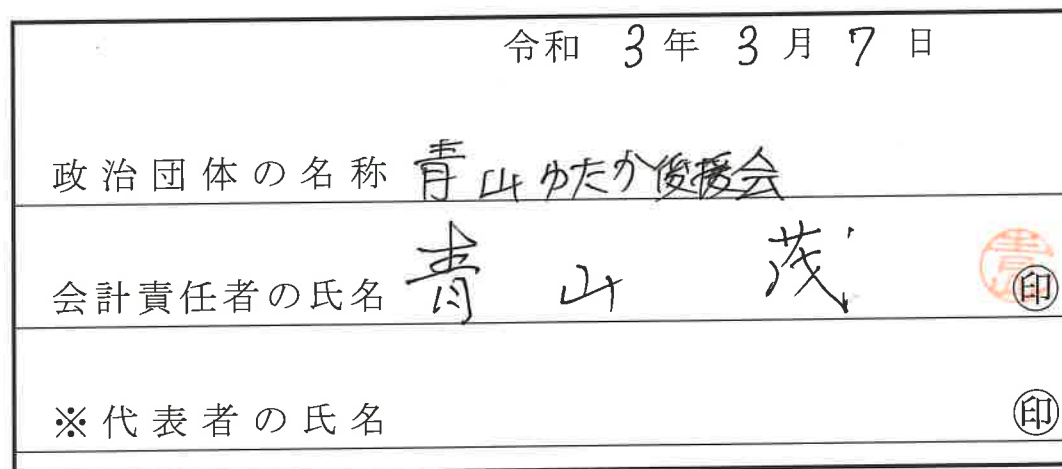 令和 3年 3月 7日
政治団体の名称 青山ゆたか後援会
会計責任者の氏名 青山 茂 青山 印
※代表者の氏名 印